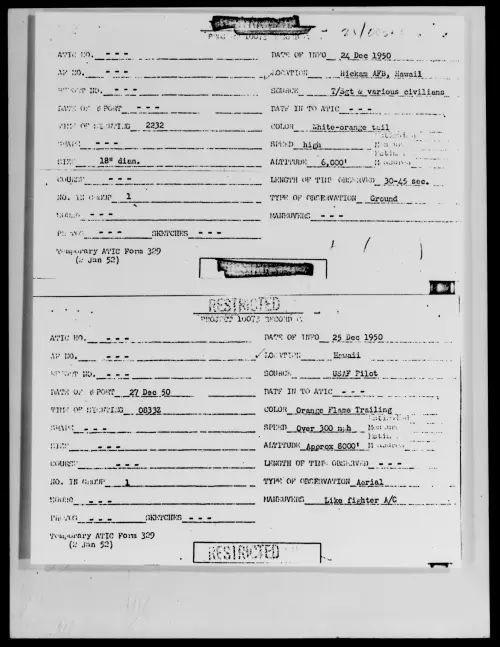 ATIC NO. - - - DATE OF INFO 24 Dec 1950
AF NO. - - - LOCATION Hickam AFB, Hawaii
REPORT NO. - - - SOURCE 7/Sgt & various civilians
DATE OF REPORT - - - DATE IN TO ATIC - - -
TIME OF SIGHTING 2232 COLOR White-orange tail
SHAPE - - - SPEED high
SIZE 18" diam. ALTITUDE 6,000'
COURSE - - - LENGTH OF TIME OBSERVED 30-45 sec.
NO. IN GROUP 1 TYPE OF OBSERVATION Ground
SOUND - - - MANEUVERS - - -
PHOTOS - - - SKETCHES - - -
Temporary ATIC Form 329
(2 Jan 52)
RESTRICTED
PROJECT 10073 RECORD
ATIC NO. - - - DATE OF INFO 25 Dec 1950
AF NO. - - - LOCATION Hawaii
REPORT NO. - - - SOURCE USAF Pilot
DATE OF REPORT 27 Dec 50 DATE IN TO ATIC - - -
TIME OF SIGHTING 0833Z COLOR Orange Flame Trailing
SHAPE - - - SPEED Over 300 mph
SIZE - - - ALTITUDE Approx 8000'
COURSE - - - LENGTH OF TIME OBSERVED - - -
NO. IN GROUP 1 TYPE OF OBSERVATION Aerial
SOUND - - - MANEUVERS Like fighter A/C
PHOTOS - - - SKETCHES - - -
Temporary ATIC Form 329
(2 Jan 52)
RESTRICTED